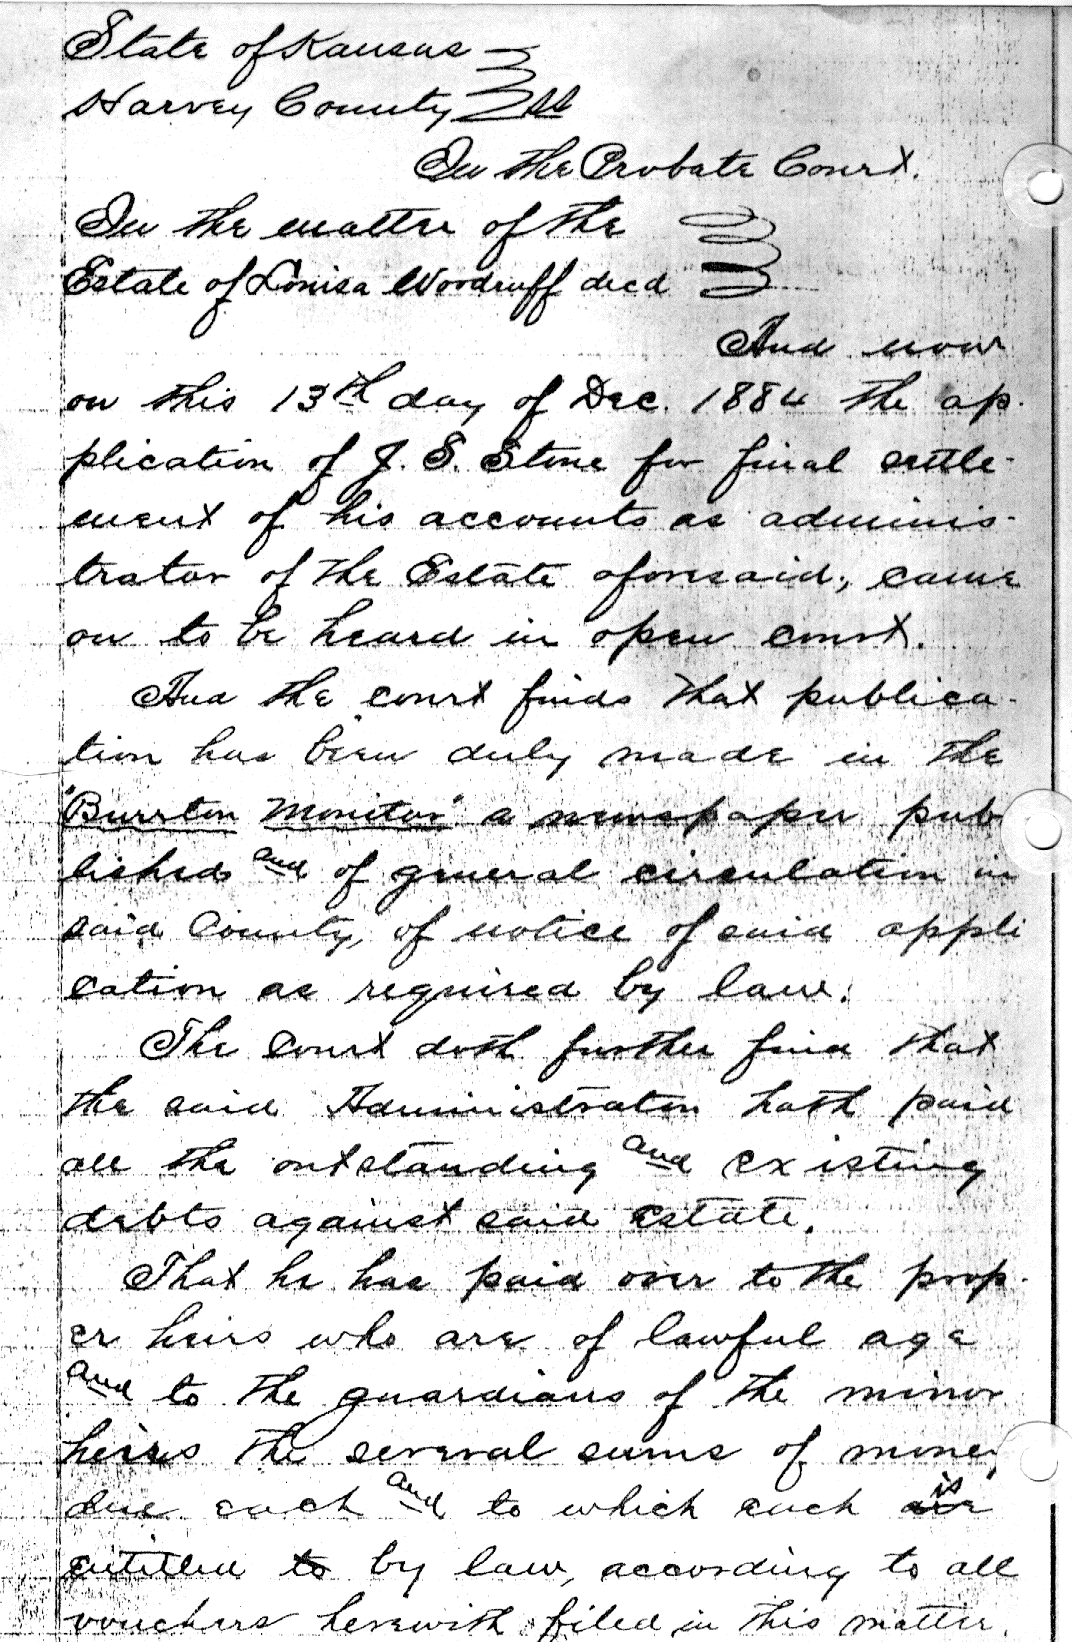 State of Kansas
Harvey County ss
In the Probate Court.
In the matter of the
Estate of Louisa Woodruff decd
And now
on this 13th day of Dec. 1884 the ap-
plication of J. S. Stone for final settle-
ment of his accounts as adminis-
trator of the Estate aforesaid, came
on to be heard in open court.
And the court finds that publica-
tion has been duly made in the
"Burrton Monitor" a newspaper pub
lished and of general circulation in
said County, of notice of said appli
cation as required by law.
The Court doth further find that
the said Administrator hath paid
all the outstanding and existing
debts against said estate.
That he has paid over to the prop-
er heirs who are of lawful age
and to the guardians of the minor
heirs the several sums of money
due each and to which each are is
entitled to by law, according to all
vouchers herewith filed in this matter.